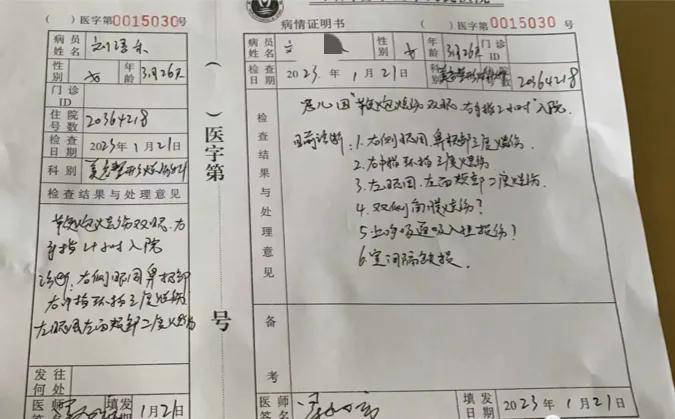 （ ）医字第0015030号
病员姓名
性别 女 年龄 3月26天
门诊ID
住院号数 20364218
检查日期 2023年1月21日
科别
检查结果与处理意见
鞭炮炸伤双眼、右
手指1小时入院
诊断：右侧眼周鼻根部
右中指环指三度烧伤
左眼周左面颊部二度烧伤
发往何处
医师签名 填发日期 1月21日
（ ）医字第 号
病情证明书
（ ）医字第0015030号
病员姓名 性别 女 年龄 3月26天 门诊ID
检查日期 2023年1月21日 科别 20364218
检查结果与处理意见
患儿因"鞭炮炸伤双眼、右手指1小时"入院
目前诊断：1.右侧眼周、鼻根部三度烧伤
2.右中指环指三度烧伤
3.左眼周、左面颊部二度烧伤.
4.双侧角膜烧伤?
5.上呼吸道吸入性损伤?
6.室间隔缺损.
备考
医师签名 填发日期 2023年1月21日